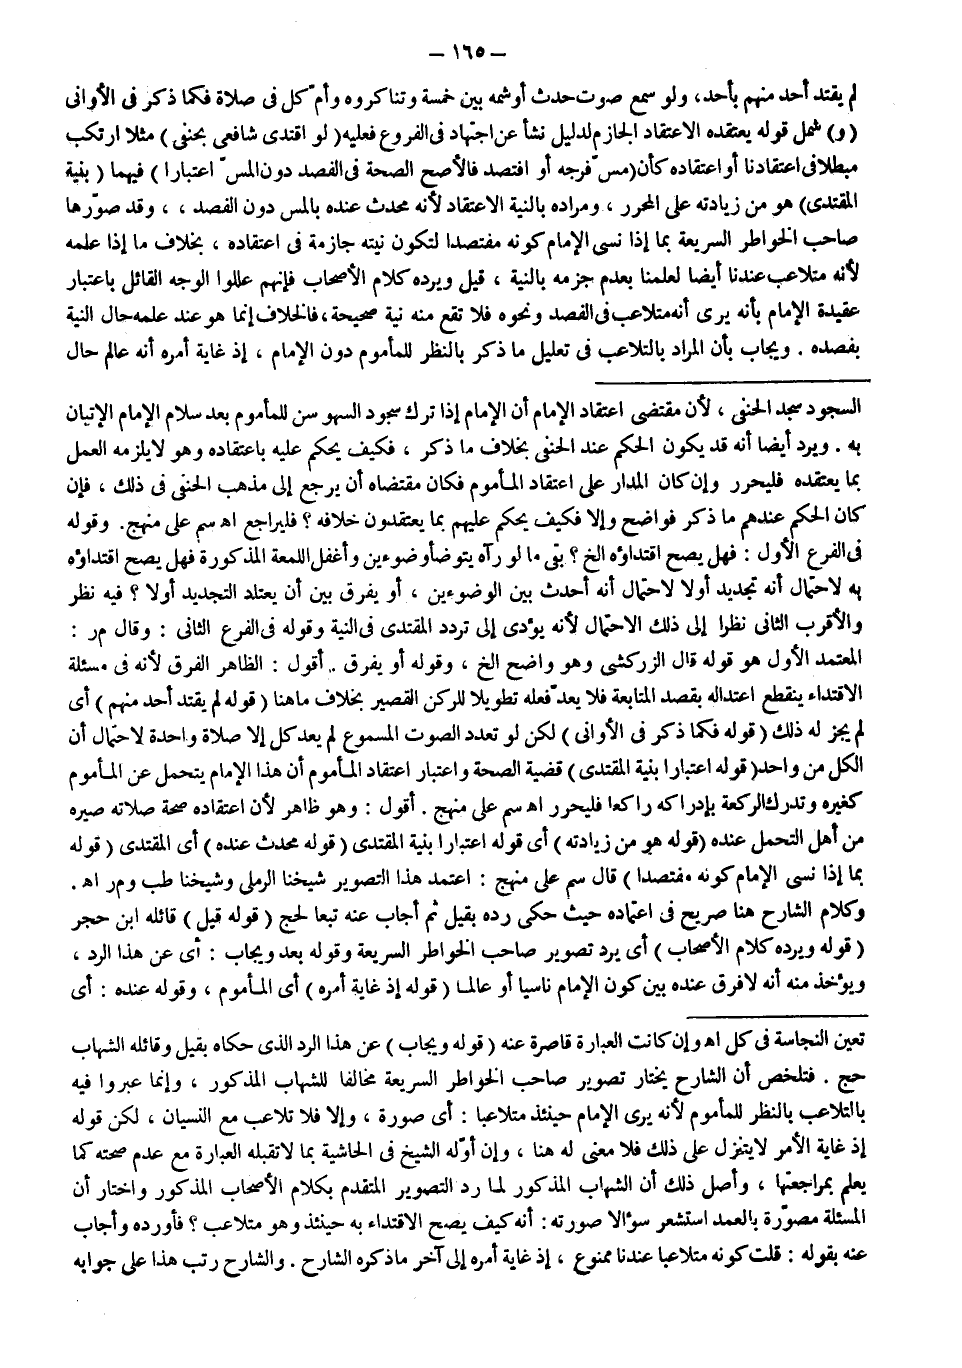 – ١٦٥ –
لم يقتد أحد منهم بأحد، ولو سمع صوت حدث أو شمه بين خمسة وتناكروه وأمّ كل فى صلاة فكما ذكر فى الأوانى
(و) شمل قوله يعتقده الاعتقاد الجازم لدليل نشأ عن اجتهاد فى الفروع فعليه (لو اقتدى شافعى بحنفى) مثلا ارتكب
مبطلا فى اعتقادنا أو اعتقاده كأن (مسّ فرجه أو افتصد فالأصح الصحة فى الفصد دون المسّ اعتبارا) فيهما (بنية
المقتدى) هو من زيادته على المحرر ، ومراده بالنية الاعتقاد لأنه محدث عنده بالمس دون الفصد ، ، وقد صوّرها
صاحب الخواطر السريعة بما إذا نسى الإمام كونه مفتصدا لتكون نيته جازمة فى اعتقاده ، بخلاف ما إذا علمه
لأنه متلاعب عندنا أيضا لعلمنا بعدم جزمه بالنية ، قيل ويرده كلام الأصحاب فإنهم عللوا الوجه القائل باعتبار
عقيدة الإمام بأنه يرى أنه متلاعب فى الفصد ونحوه فلا تقع منه نية صحيحة، فالخلاف إنما هو عند علمه حال النية
بفصده . ويجاب بأن المراد بالتلاعب فى تعليل ما ذكر بالنظر للمأموم دون الإمام ، إذ غاية أمره أنه عالم حال
السجود سجد الحنفى ، لأن مقتضى اعتقاد الإمام أن الإمام إذا ترك سجود السهو سن للمأموم بعد سلام الإمام الإتيان
به . ويرد أيضا أنه قد يكون الحكم عند الحنفى بخلاف ما ذكر ، فكيف يحكم عليه باعتقاده وهو لايلزمه العمل
بما يعتقده فليحرر وإن كان المدار على اعتقاد المأموم فكان مقتضاه أن يرجع إلى مذهب الحنفى فى ذلك ، فإن
كان الحكم عندهم ما ذكر فواضح وإلا فكيف يحكم عليهم بما يعتقدون خلافه ؟ فليراجع اه سم على منهج. وقوله
فى الفرع الأول : فهل يصح اقتداؤه الخ ؟ بقى ما لو رآه يتوضأ وضوءين وأغفل اللمعة المذكورة فهل يصح اقتداؤه
به لاحتمال أنه تجديد أولا لاحتمال أنه أحدث بين الوضوءين ، أو يفرق بين أن يعتاد التجديد أولا ؟ فيه نظر
والأقرب الثانى نظرا إلى ذلك الاحتمال لأنه يؤدى إلى تردد المقتدى فى النية وقوله فى الفرع الثانى : وقال مر :
المعتمد الأول هو قوله قال الزركشى وهو واضح الخ ، وقوله أو يفرق .. أقول : الظاهر الفرق لأنه فى مسئلة
الاقتداء ينقطع اعتداله بقصد المتابعة فلا يعدّ فعله تطويلا للركن القصير بخلاف ماهنا (قوله لم يقتد أحد منهم) أى
لم يجز له ذلك (قوله فكما ذكر فى الأوانى) لكن لو تعدد الصوت المسموع لم يعد كل إلا صلاة واحدة لاحتمال أن
الكل من واحد (قوله اعتبارا بنية المقتدى) قضية الصحة واعتبار اعتقاد المأموم أن هذا الإمام يتحمل عن المأموم
كغيره وتدرك الركعة بإدراكه راكعا فليحرر اه سم على منهج . أقول : وهو ظاهر لأن اعتقاده صحة صلاته صيره
من أهل التحمل عنده (قوله هو من زيادته) أى قوله اعتبارا بنية المقتدى (قوله محدث عنده) أى المقتدى (قوله
بما إذا نسى الإمام كونه مفتصدا) قال سم على منهج : اعتمد هذا التصوير شيخنا الرملى وشيخنا طب ومر اه .
وكلام الشارح هنا صريح فى اعتماده حيث حكى رده بقيل ثم أجاب عنه تبعا لحج (قوله قيل) قائله ابن حجر
(قوله ويرده كلام الأصحاب) أى يرد تصوير صاحب الخواطر السريعة وقوله بعد ويجاب : أى عن هذا الرد ،
ويؤخذ منه أنه لافرق عنده بين كون الإمام ناسيا أو عالما (قوله إذ غاية أمره) أى المأموم ، وقوله عنده : أى
تعين النجاسة فى كل اه وإن كانت العبارة قاصرة عنه (قوله ويجاب) عن هذا الرد الذى حكاه بقيل وقائله الشهاب
حج . فتلخص أن الشارح يختار تصوير صاحب الخواطر السريعة مخالفا للشهاب المذكور ، وإنما عبروا فيه
بالتلاعب بالنظر للمأموم لأنه يرى الإمام حينئذ متلاعبا : أى صورة ، وإلا فلا تلاعب مع النسيان ، لكن قوله
إذ غاية الأمر لايتنزل على ذلك فلا معنى له هنا ، وإن أوّله الشيخ فى الحاشية بما لاتقبله العبارة مع عدم صحته كما
يعلم بمراجعتها ، وأصل ذلك أن الشهاب المذكور لما رد التصوير المتقدم بكلام الأصحاب المذكور واختار أن
المسئلة مصوّرة بالعمد استشعر سؤالا صورته : أنه كيف يصح الاقتداء به حينئذ وهو متلاعب ؟ فأورده وأجاب
عنه بقوله : قلت كونه متلاعبا عندنا ممنوع ، إذ غاية أمره إلى آخر ماذكره الشارح . والشارح رتب هذا على جوابه